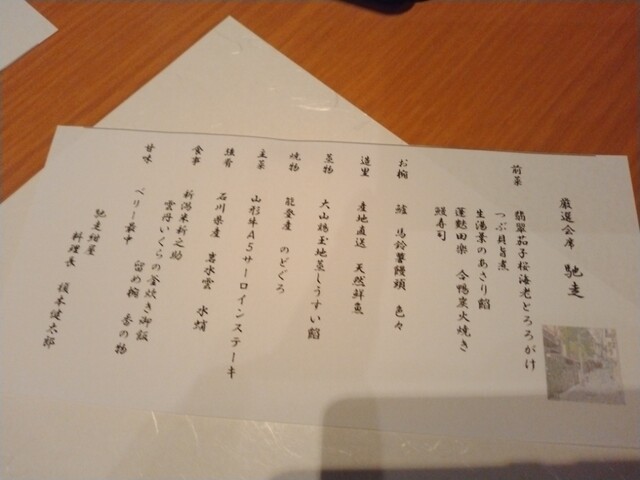 厳選会席 馳走
前菜
翡翠茄子桜海老とろろがけ
つぶ貝旨煮
生湯葉のあさり餡
蓬麩田楽 合鴨炭火焼き
鰻寿司
お椀
鱧 馬鈴薯饅頭 色々
造里
産地直送 天然鮮魚
蒸物
大山鶏玉地蒸しうすい餡
焼物
能登産 のどぐろ
主菜
山形牛A5サーロインステーキ
進肴
石川県産 岩水雲 水蛸
食事
新潟米新之助
雲丹いくらの釜炊き御飯
留め椀 香の物
甘味
ベリー最中
馳走紺屋
料理長 榎本健太郎